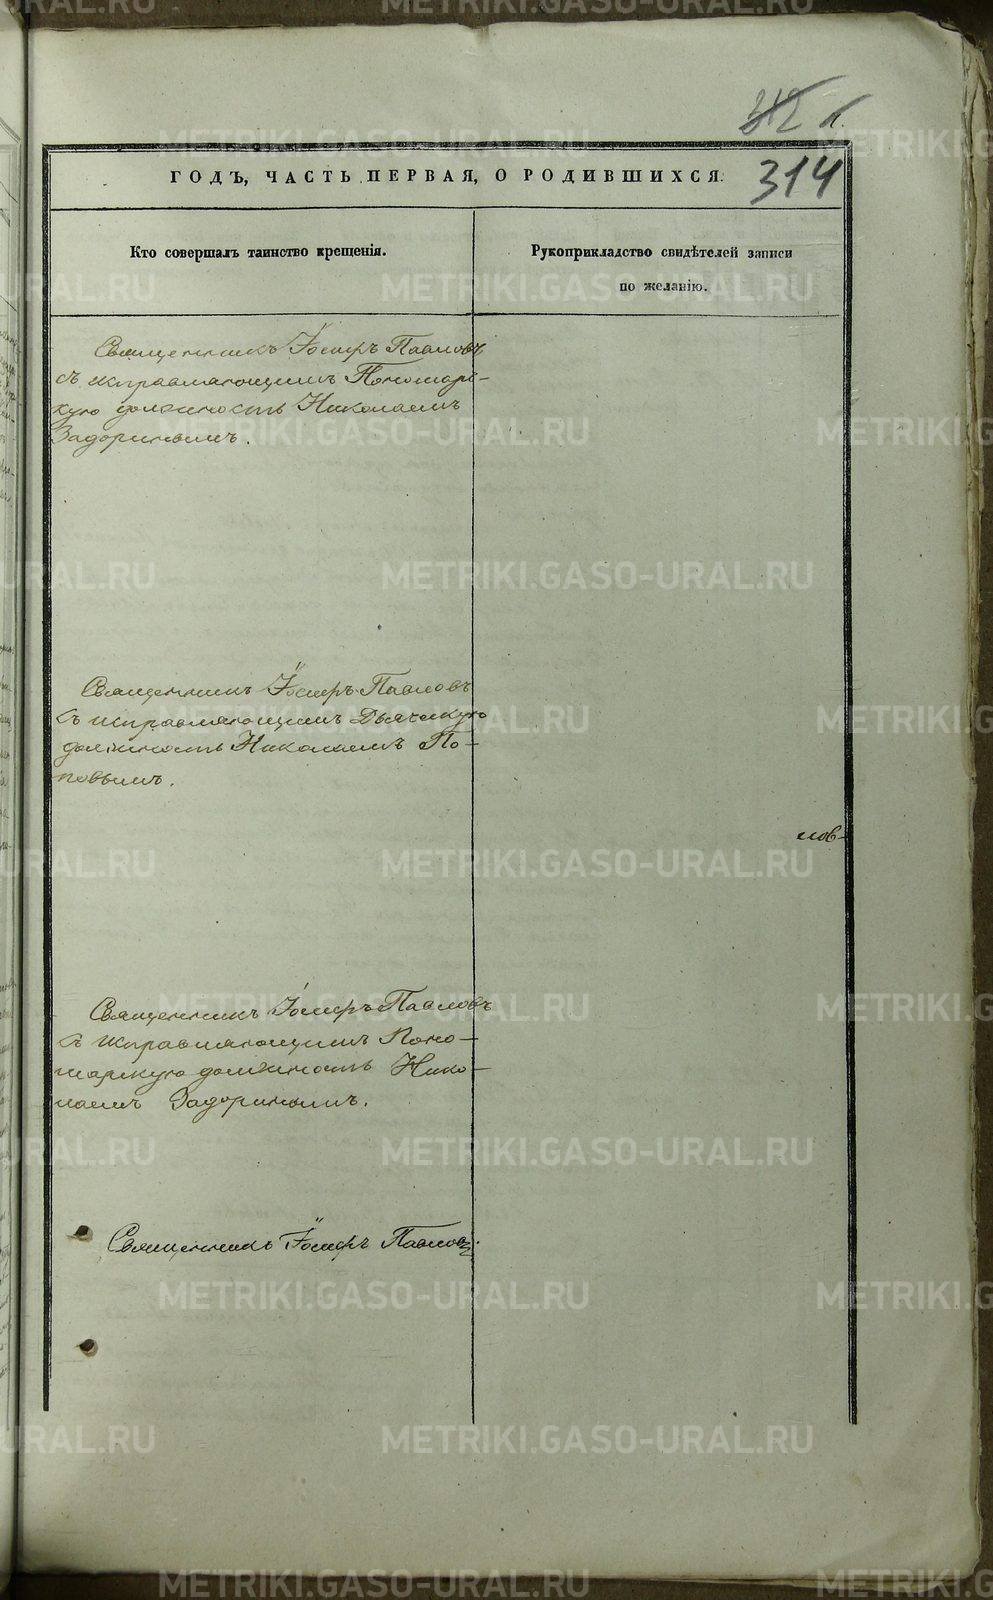 312 л.
314
ГОДЪ, ЧАСТЬ ПЕРВАЯ, О РОДИВШИХСЯ.
Кто совершалъ таинство крещенія.
Рукоприкладство свидѣтелей записи
по желанію.
Священникъ Іосифъ Павловъ
съ исправляющимъ Пономарс-
кую должность Николаемъ
Задоринымъ.
Священникъ Іосифъ Павловъ
съ исправляющимъ Дьячскую
должность Николаемъ По-
повымъ.
Священникъ Іосифъ Павловъ
съ исправляющимъ Поно-
марскую должность Нико-
лаемъ Задоринымъ.
Священникъ Іосифъ Павловъ.
METRIKI.GASO-URAL.RU